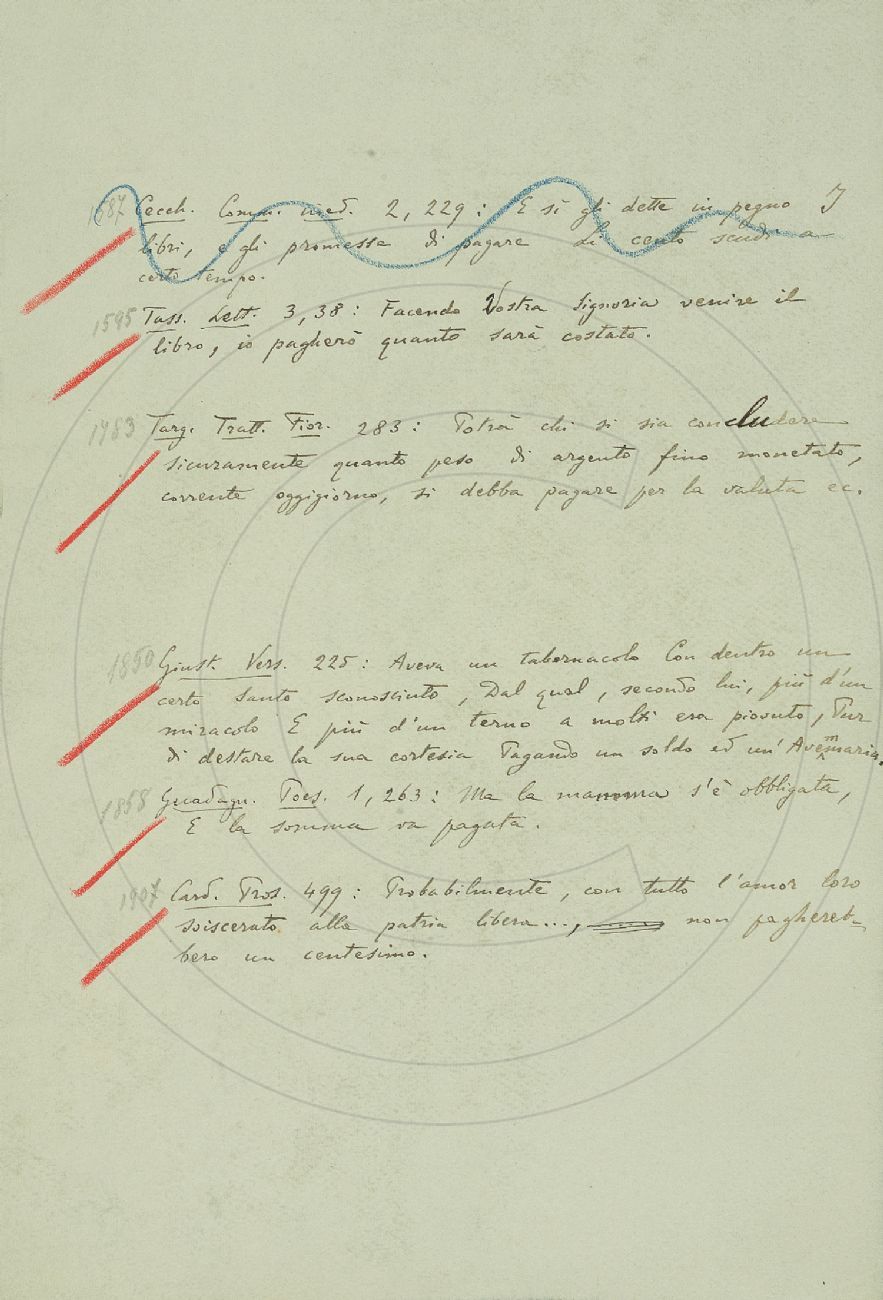 1587 Cecch. Comm. ined. 2, 229: E sì gli dette in pegno I
libri, e gli promesse di pagare Li cento scudi a
certo tempo.
1595 Tass. Lett. 3, 38: Facendo Vostra Signoria venire il
libro, io pagherò quanto sarà costato.
1783 Targ. Tratt. Fior. 283: Potrà chi si sia concludere
sicuramente quanto peso di argento fino monetato,
corrente oggigiorno, si debba pagare per la valuta ec.
1850 Giust. Vers. 225: Aveva un tabernacolo Con dentro un
certo santo sconosciuto, Dal qual, secondo lui, più d'un
miracolo E più d'un terno a molti era piovuto, Pur
di destare la sua cortesia Pagando un soldo ed un'Avemmaria.
1858 Guadagn. Poes. 1, 263: Ma la mamma s'è obbligata,
E la somma va pagata.
1907 Card. Pros. 499: Probabilmente, con tutto l'amor loro
sviscerato alla patria libera..., non pghereb-
bero un centesimo.